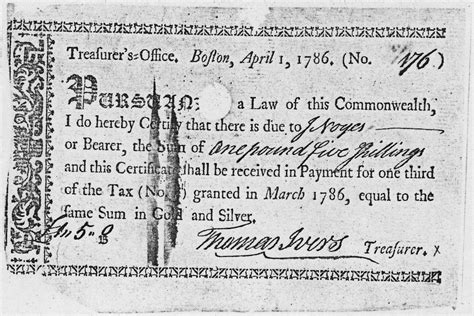 Treasurer's-Office. Boston, April 1, 1786. (No. 176)
PURSUAN a Law of this Commonwealth,
I do hereby Certify that there is due to J Noyes
or Bearer, the Sum of One pound Five Shillings
and this Certificate shall be received in Payment for one third
of the Tax (No. ) granted in March 1786, equal to the
same Sum in Gold and Silver.
Thomas Ivers Treasurer.